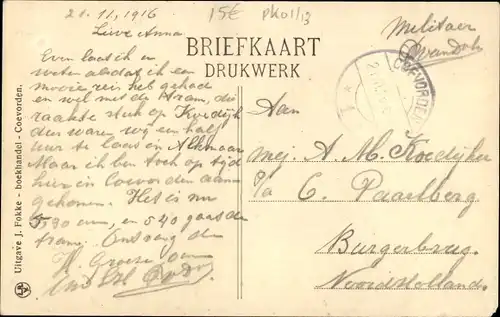 21.11,1916
15€
PK01/13
Lieve Anna
Even laat ik en
weten alsdat ik een
mooie reis heb gehad
en wel met de tram, die
raakte stuk op Koedijk
dus waren wij een half
uur te laat in Alkmaar
Maar ik ben toch op tijd
hier in Coevorden aan
gekomen. Het is nu
5,30 uur, en 5 40 gaat de
tram. Ontvang de
H. Groeten van
BRIEFKAART
DRUKWERK
Militair
COEVORDEN
Aan
Mej. A. M. Koedijker
p/a C. Paarlberg
Burgerbrug.
Noordholland.
Uitgave J. Fokke - boekhandel - Coevorden.